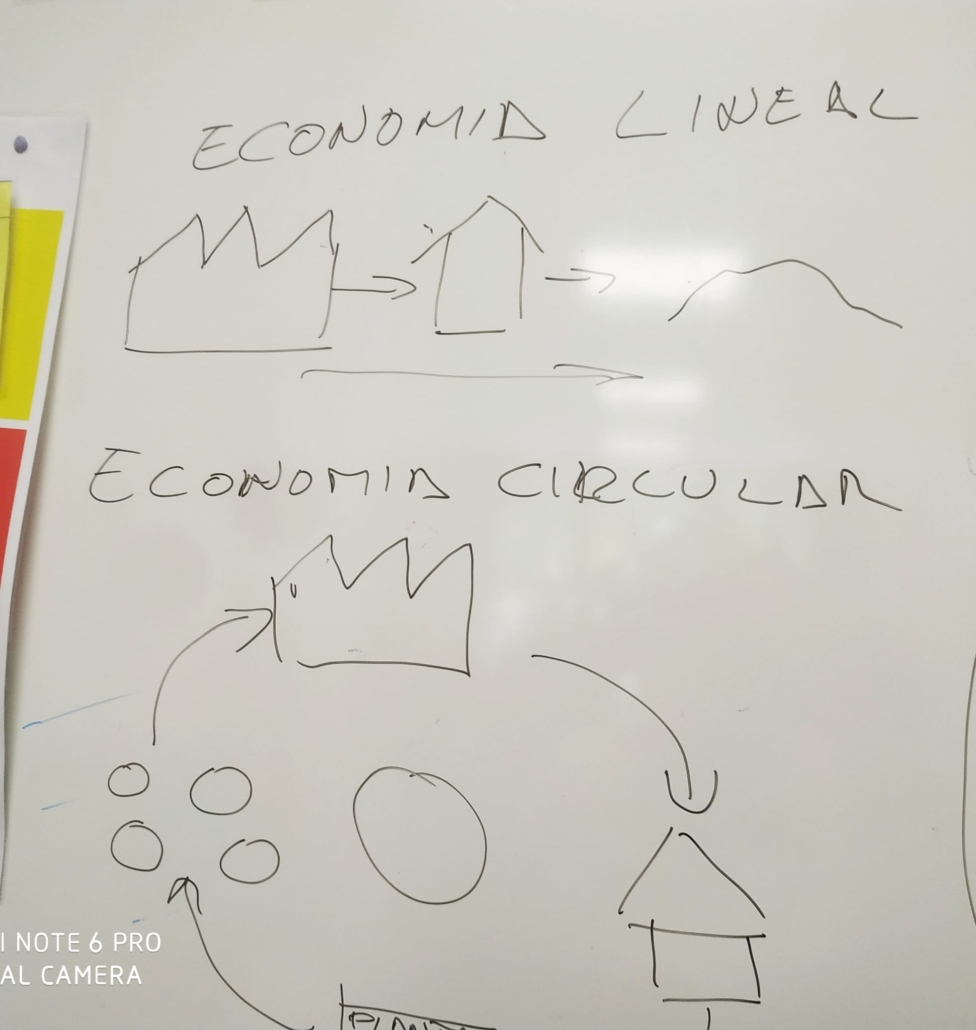 ECONOMIA LINEAL
ECONOMIA CIRCULAR
I NOTE 6 PRO
AL CAMERA